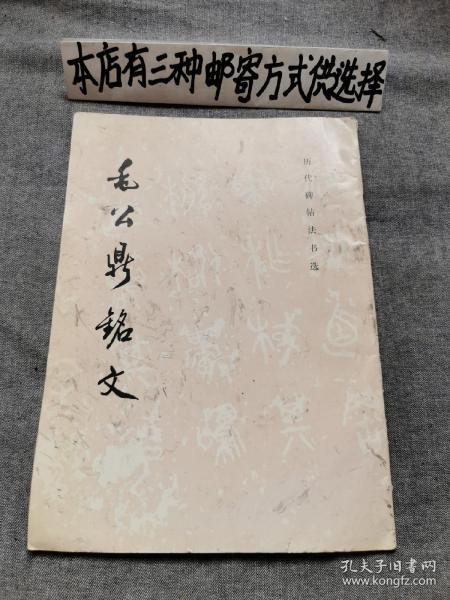 本店有三种邮寄方式供选择
历代碑帖法书选
毛公鼎铭文
孔夫子旧书网
www.kongfz.com